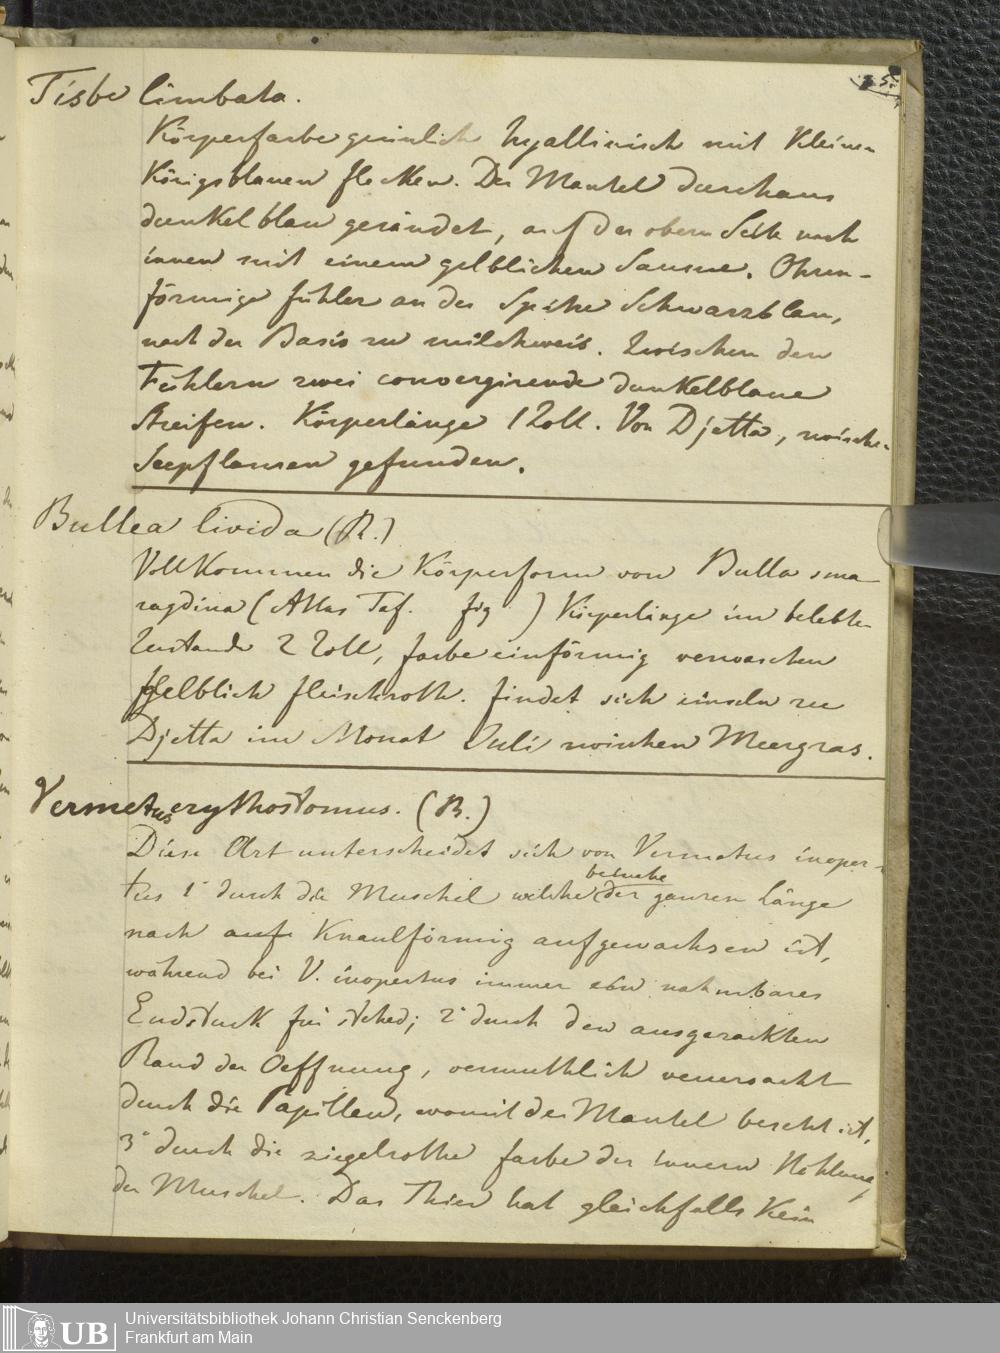 Tisbe limbata.
Körperfarbe grünlich hyallinisch mit Kleinen
Königsblauen flecken. Der Mantel durchaus
dunkelblau gerändet, auf der obern Seite nach
innen mit einem gelblichen Saume. Ohren-
förmige fühler an der Spitze Schwarzblau,
nach der Basis zu milchweis. Zwischen den
Fühlern zwei convergirende dunkelblaue
Streifen. Körperlänge 1 Zoll. Von Djetta, zwischen
Seepflanzen gefunden.
Bullea livida (R.)
Vollkommen die Körperform von Bulla sma
ragdina (Atlas Taf. fig ) Körperlänge im belebten
Zustande 2 Zoll, farbe einförmig verwaschen
gelblich fleischroth. findet sich einzeln zu
Djetta im Monat Juli zwischen Meergras.
Vermetus erythostomus. (R.)
Diese Art unterscheidet sich von Vermetus inoper-
tus 1° durch die Muschel welche beinahe der ganzen Länge
nach auf Knaulförmig aufgewachsen ist,
während bei V. inopertus immer ein nahmbares
Endstück frei stehed; 2° durch den ausgezackten
Rand der Oeffnung, vermuthlich verursacht
durch die Papillen, womit der Mantel besetzt ist,
3° durch die ziegelrothe farbe der innern Höhlung
der Muschel. Das Thier hat gleichfalls Kein
Universitätsbibliothek Johann Christian Senckenberg
Frankfurt am Main
UB